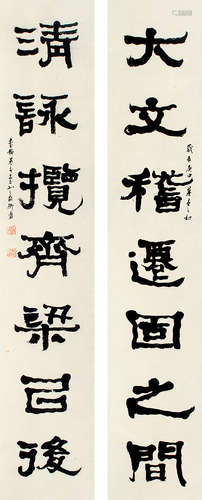 大文稽遷固之間
清詠攬齊梁已後